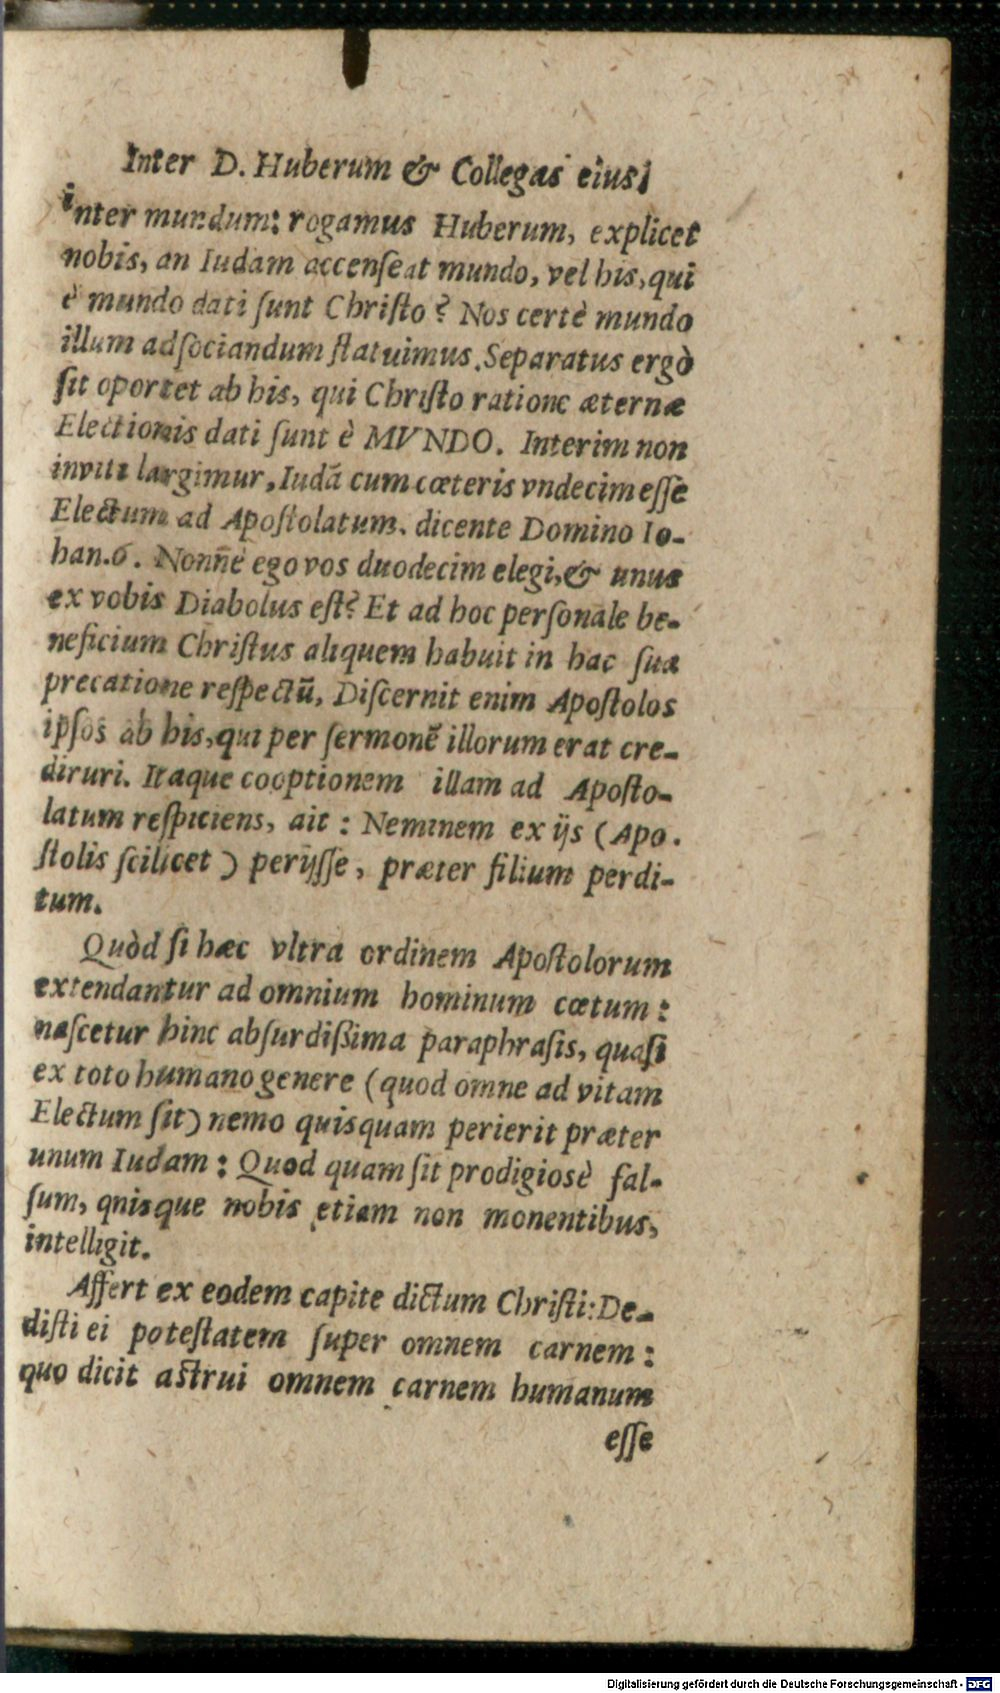 Inter D. Huberum & Collegas eius.
inter mundum: rogamus Huberum, explicet
nobis, an Iudam accenſeat mundo, vel his, qui
è mundo dati ſunt Chriſto? Nos certè mundo
illum adſociandum ſtatuimus. Separatus ergò
ſit oportet ab his, qui Chriſto ratione æternæ
Electionis dati ſunt è MVNDO. Interim non
inviti largimur, Iudā cum cœteris vndecim eſſe
Electum ad Apoſtolatum. dicente Domino Io-
han. 6. Nonnē ego vos duodecim elegi, & unus
ex vobis Diabolus eſt? Et ad hoc perſonale be-
neficium Chriſtus aliquem habuit in hac ſua
precatione reſpectū, Diſcernit enim Apoſtolos
ipſos ab his, qui per ſermonē illorum erat cre-
dituri. Itaque cooptionem illam ad Apoſto-
latum reſpiciens, ait: Neminem ex ijs (Apo.
ſtolis ſcilicet) perijſſe, præter filium perdi-
tum.
Quòd ſi hæc vltra ordinem Apoſtolorum
extendantur ad omnium hominum cœtum:
naſcetur hinc abſurdißima paraphraſis, quaſi
ex toto humano genere (quod omne ad vitam
Electum ſit) nemo quisquam perierit præter
unum Iudam: Quod quam ſit prodigiosè fal-
ſum, qnisque nobis etiam non monentibus,
intelligit.
Affert ex eodem capite dictum Chriſti: De-
diſti ei poteſtatem ſuper omnem carnem:
quo dicit aſtrui omnem carnem humanum
eſſe
Digitalisierung gefördert durch die Deutsche Forschungsgemeinschaft - DFG